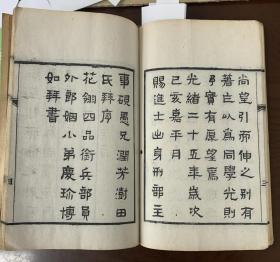 尚望引而伸之別有
著立以為同學光則
予實有厚望焉
光緒二十五年歲次
己亥嘉平月
賜進士出身刑部主
事硯愚兄潤芳澍田
氏拜序
花翎四品銜兵部員
外郎姻小弟慶珍博
如拜書